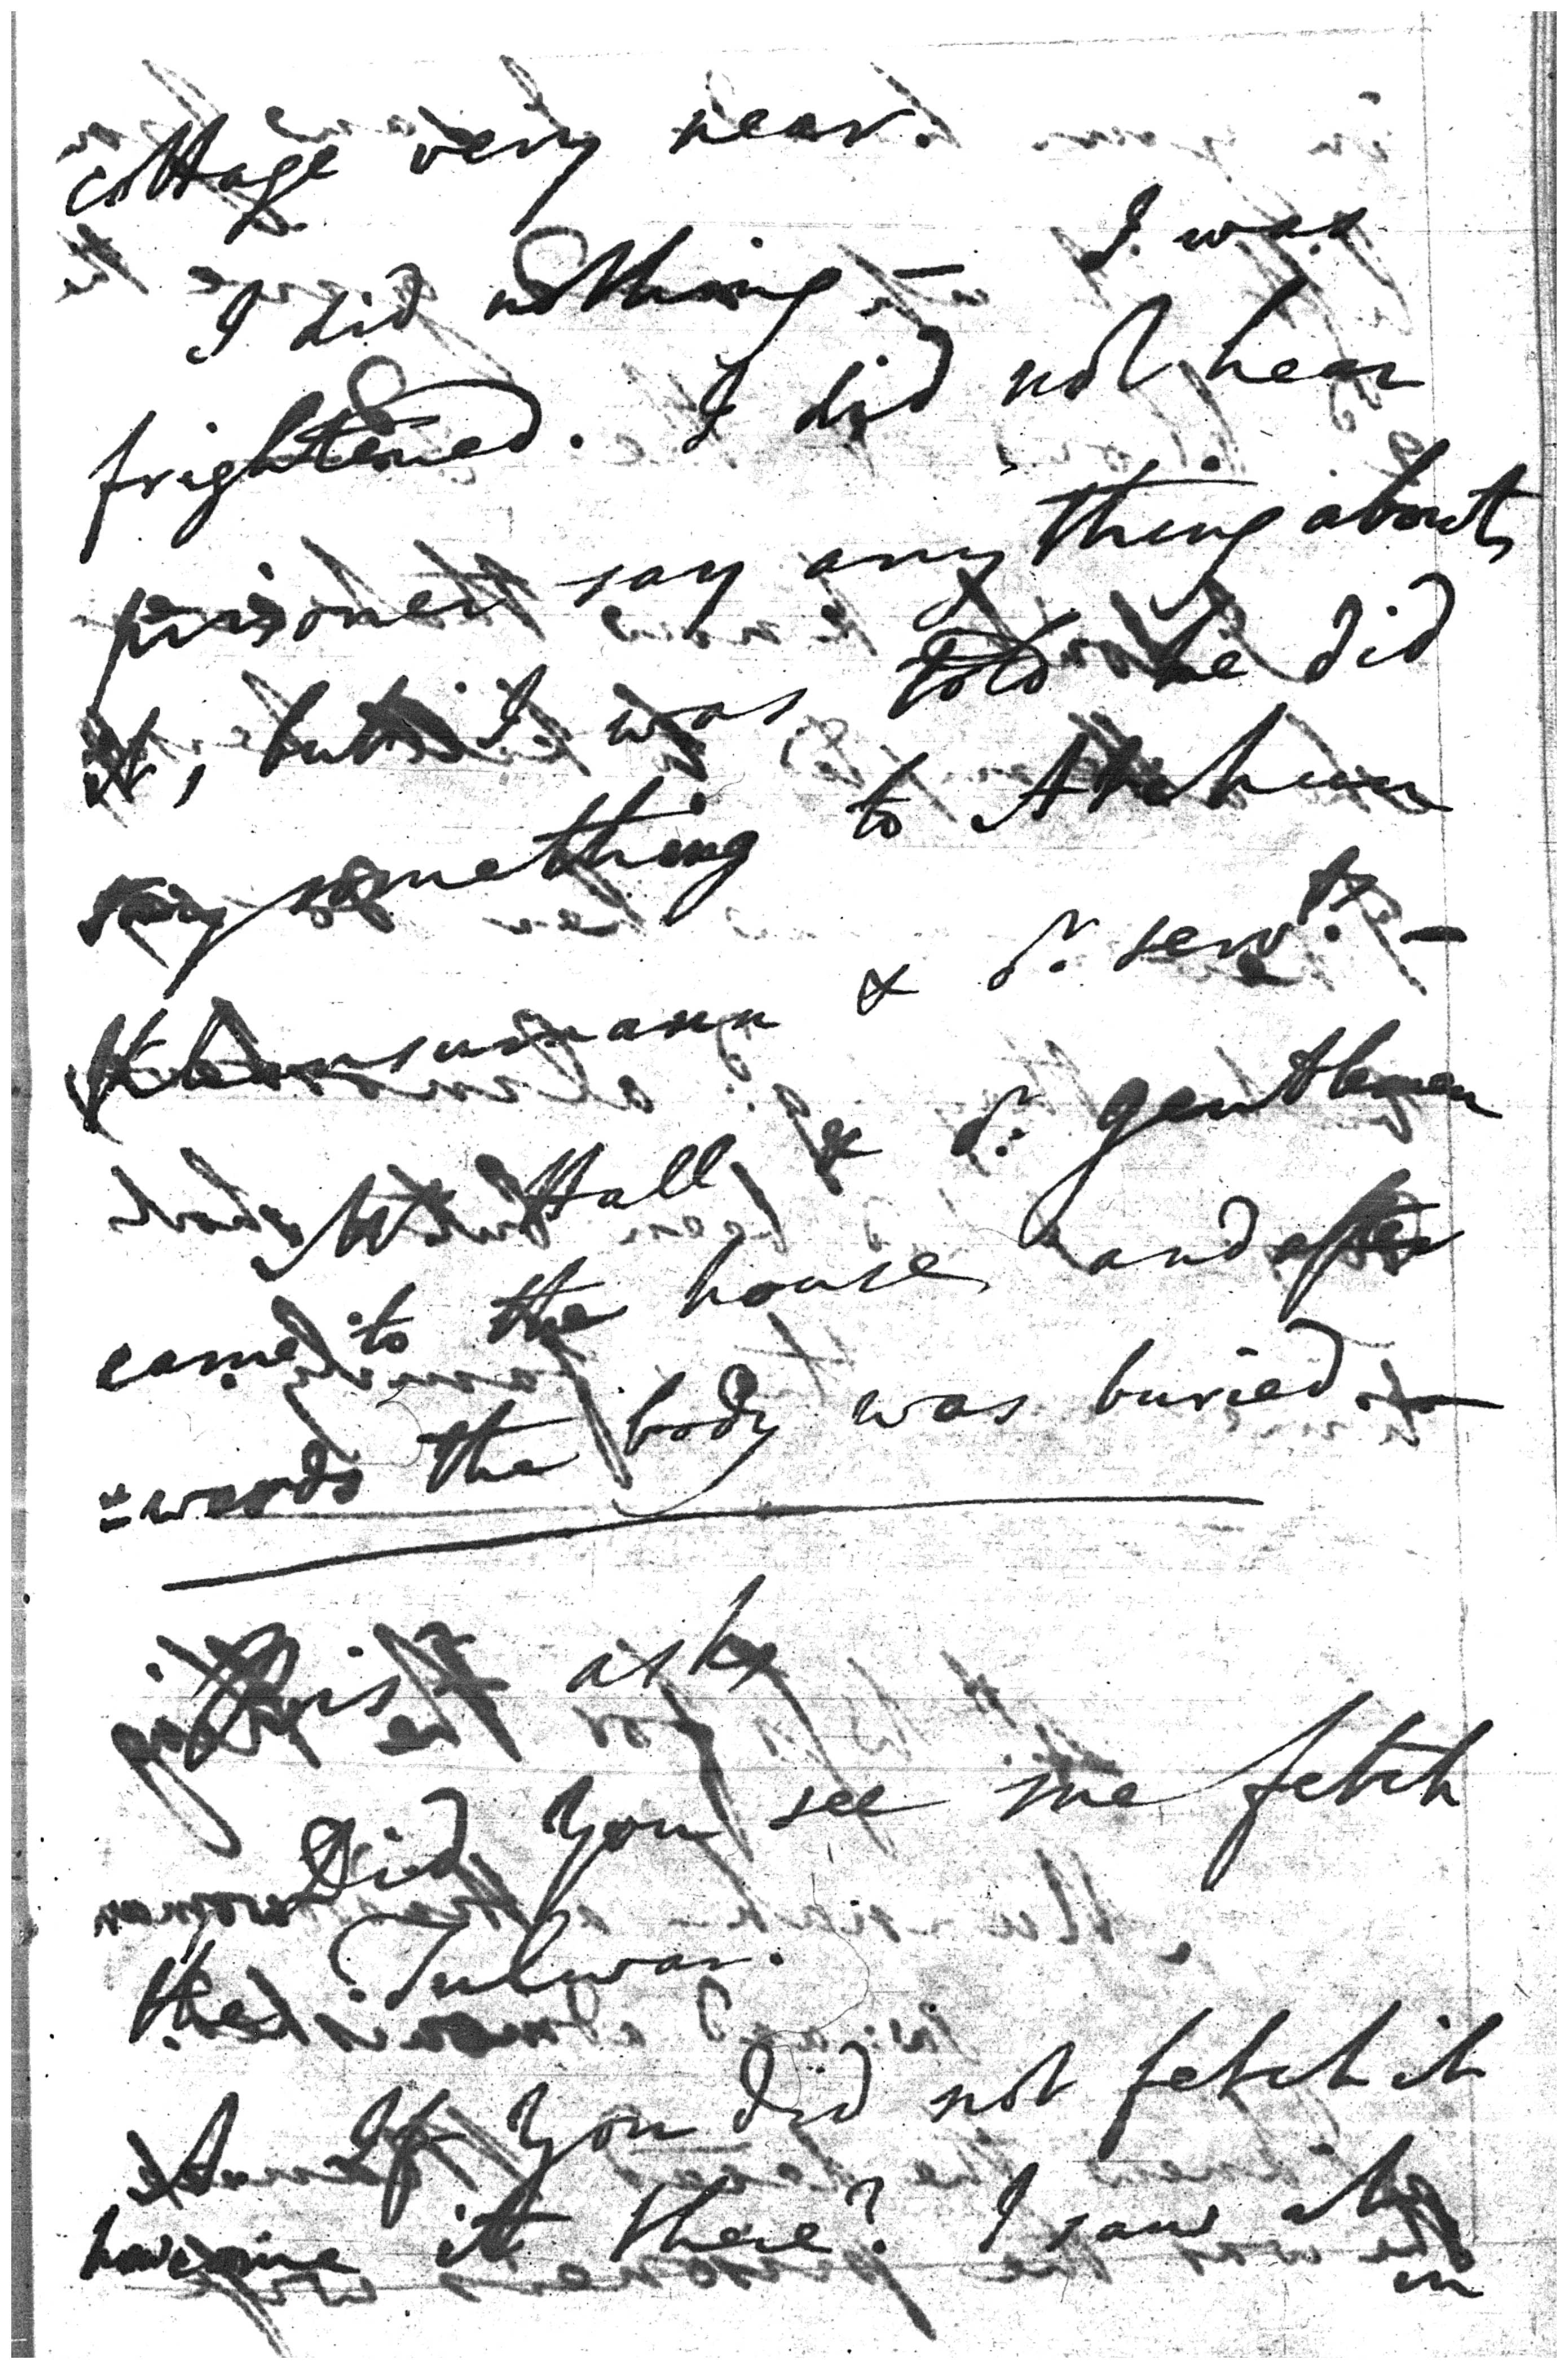 cottage very near.
I did nothing — I was
frightened. I did not hear
prisoner say any thing about
it, but I was told he did
say something to
& or. servts. —
Mr Hall, & or. gentlemen
came to the house and after
=wards the body was buried —
Prisr asks
Did you see me fetch
the Tulwar.
A If you did not fetch it
how came it there? I saw it
in